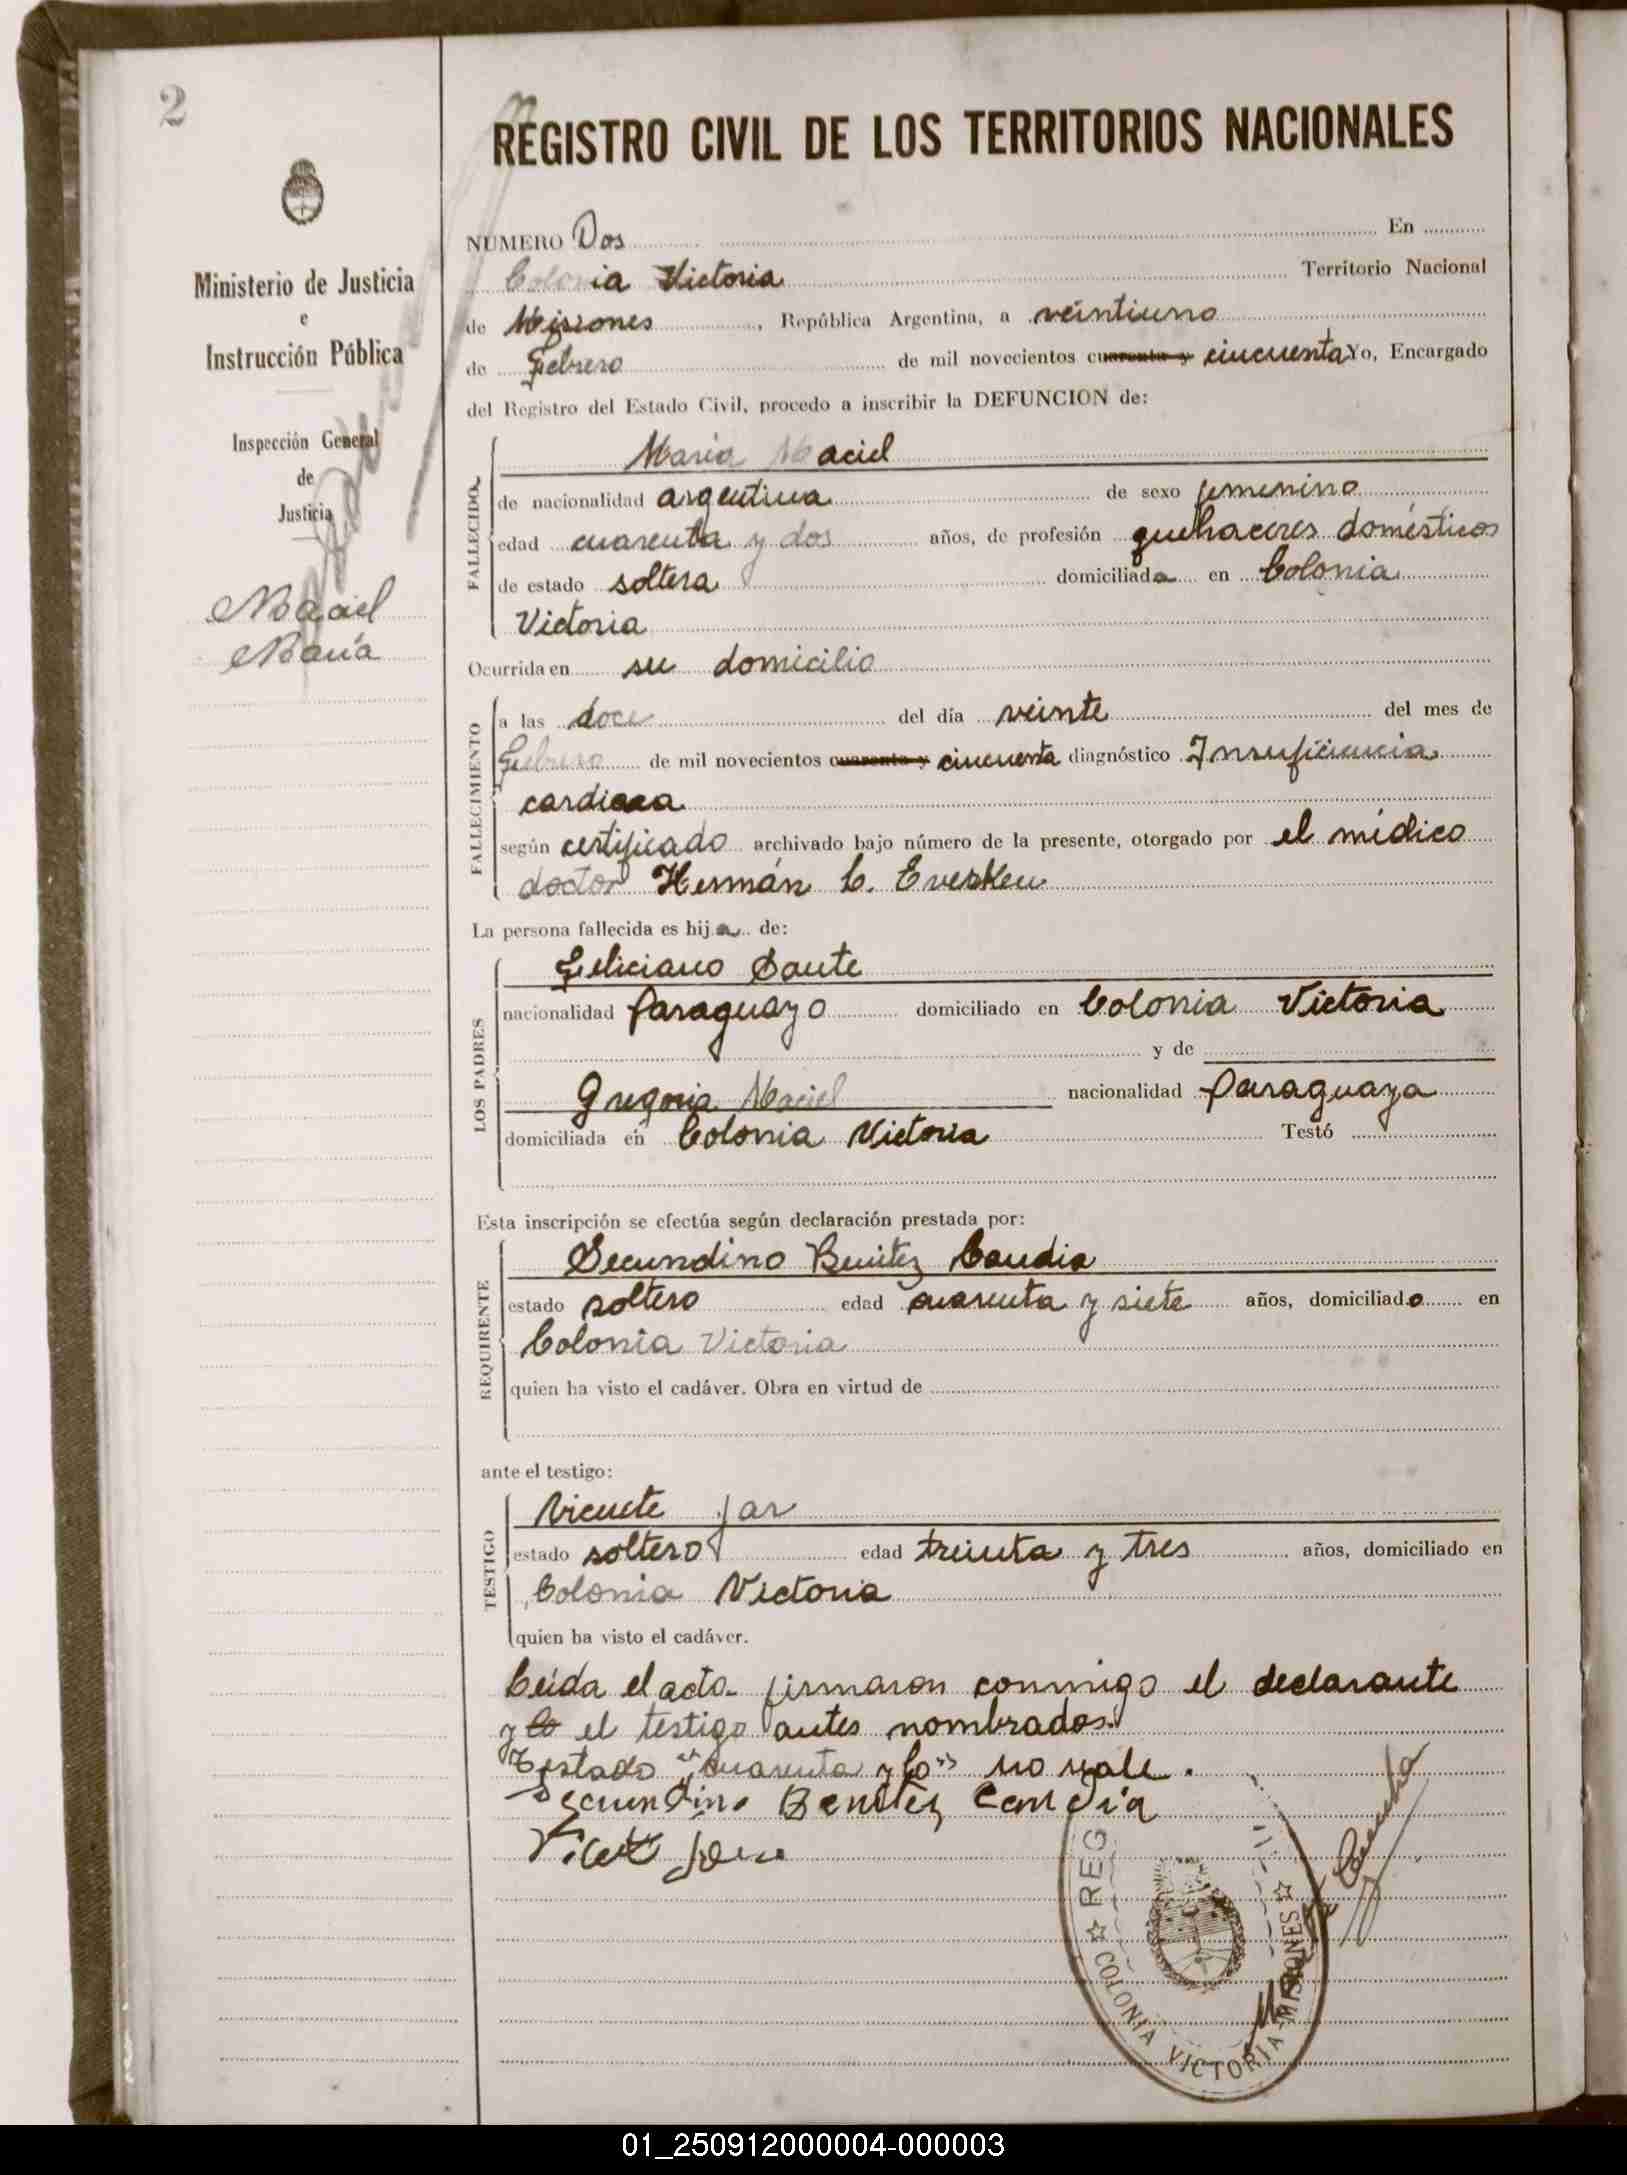 2
REGISTRO CIVIL DE LOS TERRITORIOS NACIONALES
Ministerio de Justicia
e
Instrucción Pública
Inspección General
de
Justicia
Maciel
María
NUMERO Dos En
Colonia Victoria Territorio Nacional
de Misiones, República Argentina, a veintiuno
de Febrero de mil novecientos cuarenta y cincuenta Yo, Encargado
del Registro del Estado Civil, procedo a inscribir la DEFUNCION de:
FALLECIDO
María Maciel
de nacionalidad argentina de sexo femenino
edad cuarenta y dos años, de profesión quehaceres domésticos
de estado soltera domiciliada en Colonia
Victoria
Ocurrida en su domicilio
FALLECIMIENTO
a las doce del día veinte del mes de
Febrero de mil novecientos cuarenta y cincuenta diagnóstico Insuficiencia
cardiaca
según certificado archivado bajo número de la presente, otorgado por el médico
doctor Hermán C. Eversken
La persona fallecida es hija de:
LOS PADRES
Feliciano Dante
nacionalidad Paraguayo domiciliado en Colonia Victoria
y de
Gregoria Maciel nacionalidad Paraguaya
domiciliada en Colonia Victoria Testó
Esta inscripción se efectúa según declaración prestada por:
REQUIRENTE
Secundino Benitez Candia
estado soltero edad cuarenta y siete años, domiciliado en
Colonia Victoria
quien ha visto el cadáver. Obra en virtud de
ante el testigo:
TESTIGO
Vicente
estado soltero edad treinta y tres años, domiciliado en
Colonia Victoria
quien ha visto el cadáver.
Leída el acta firmaron conmigo el declarante
y lo el testigo antes nombrados.
Testado "cuarenta y lo" no vale.
Secundino Benitez Candia
REG
COLONIA VICTORIA - MISIONES
01_250912000004-000003